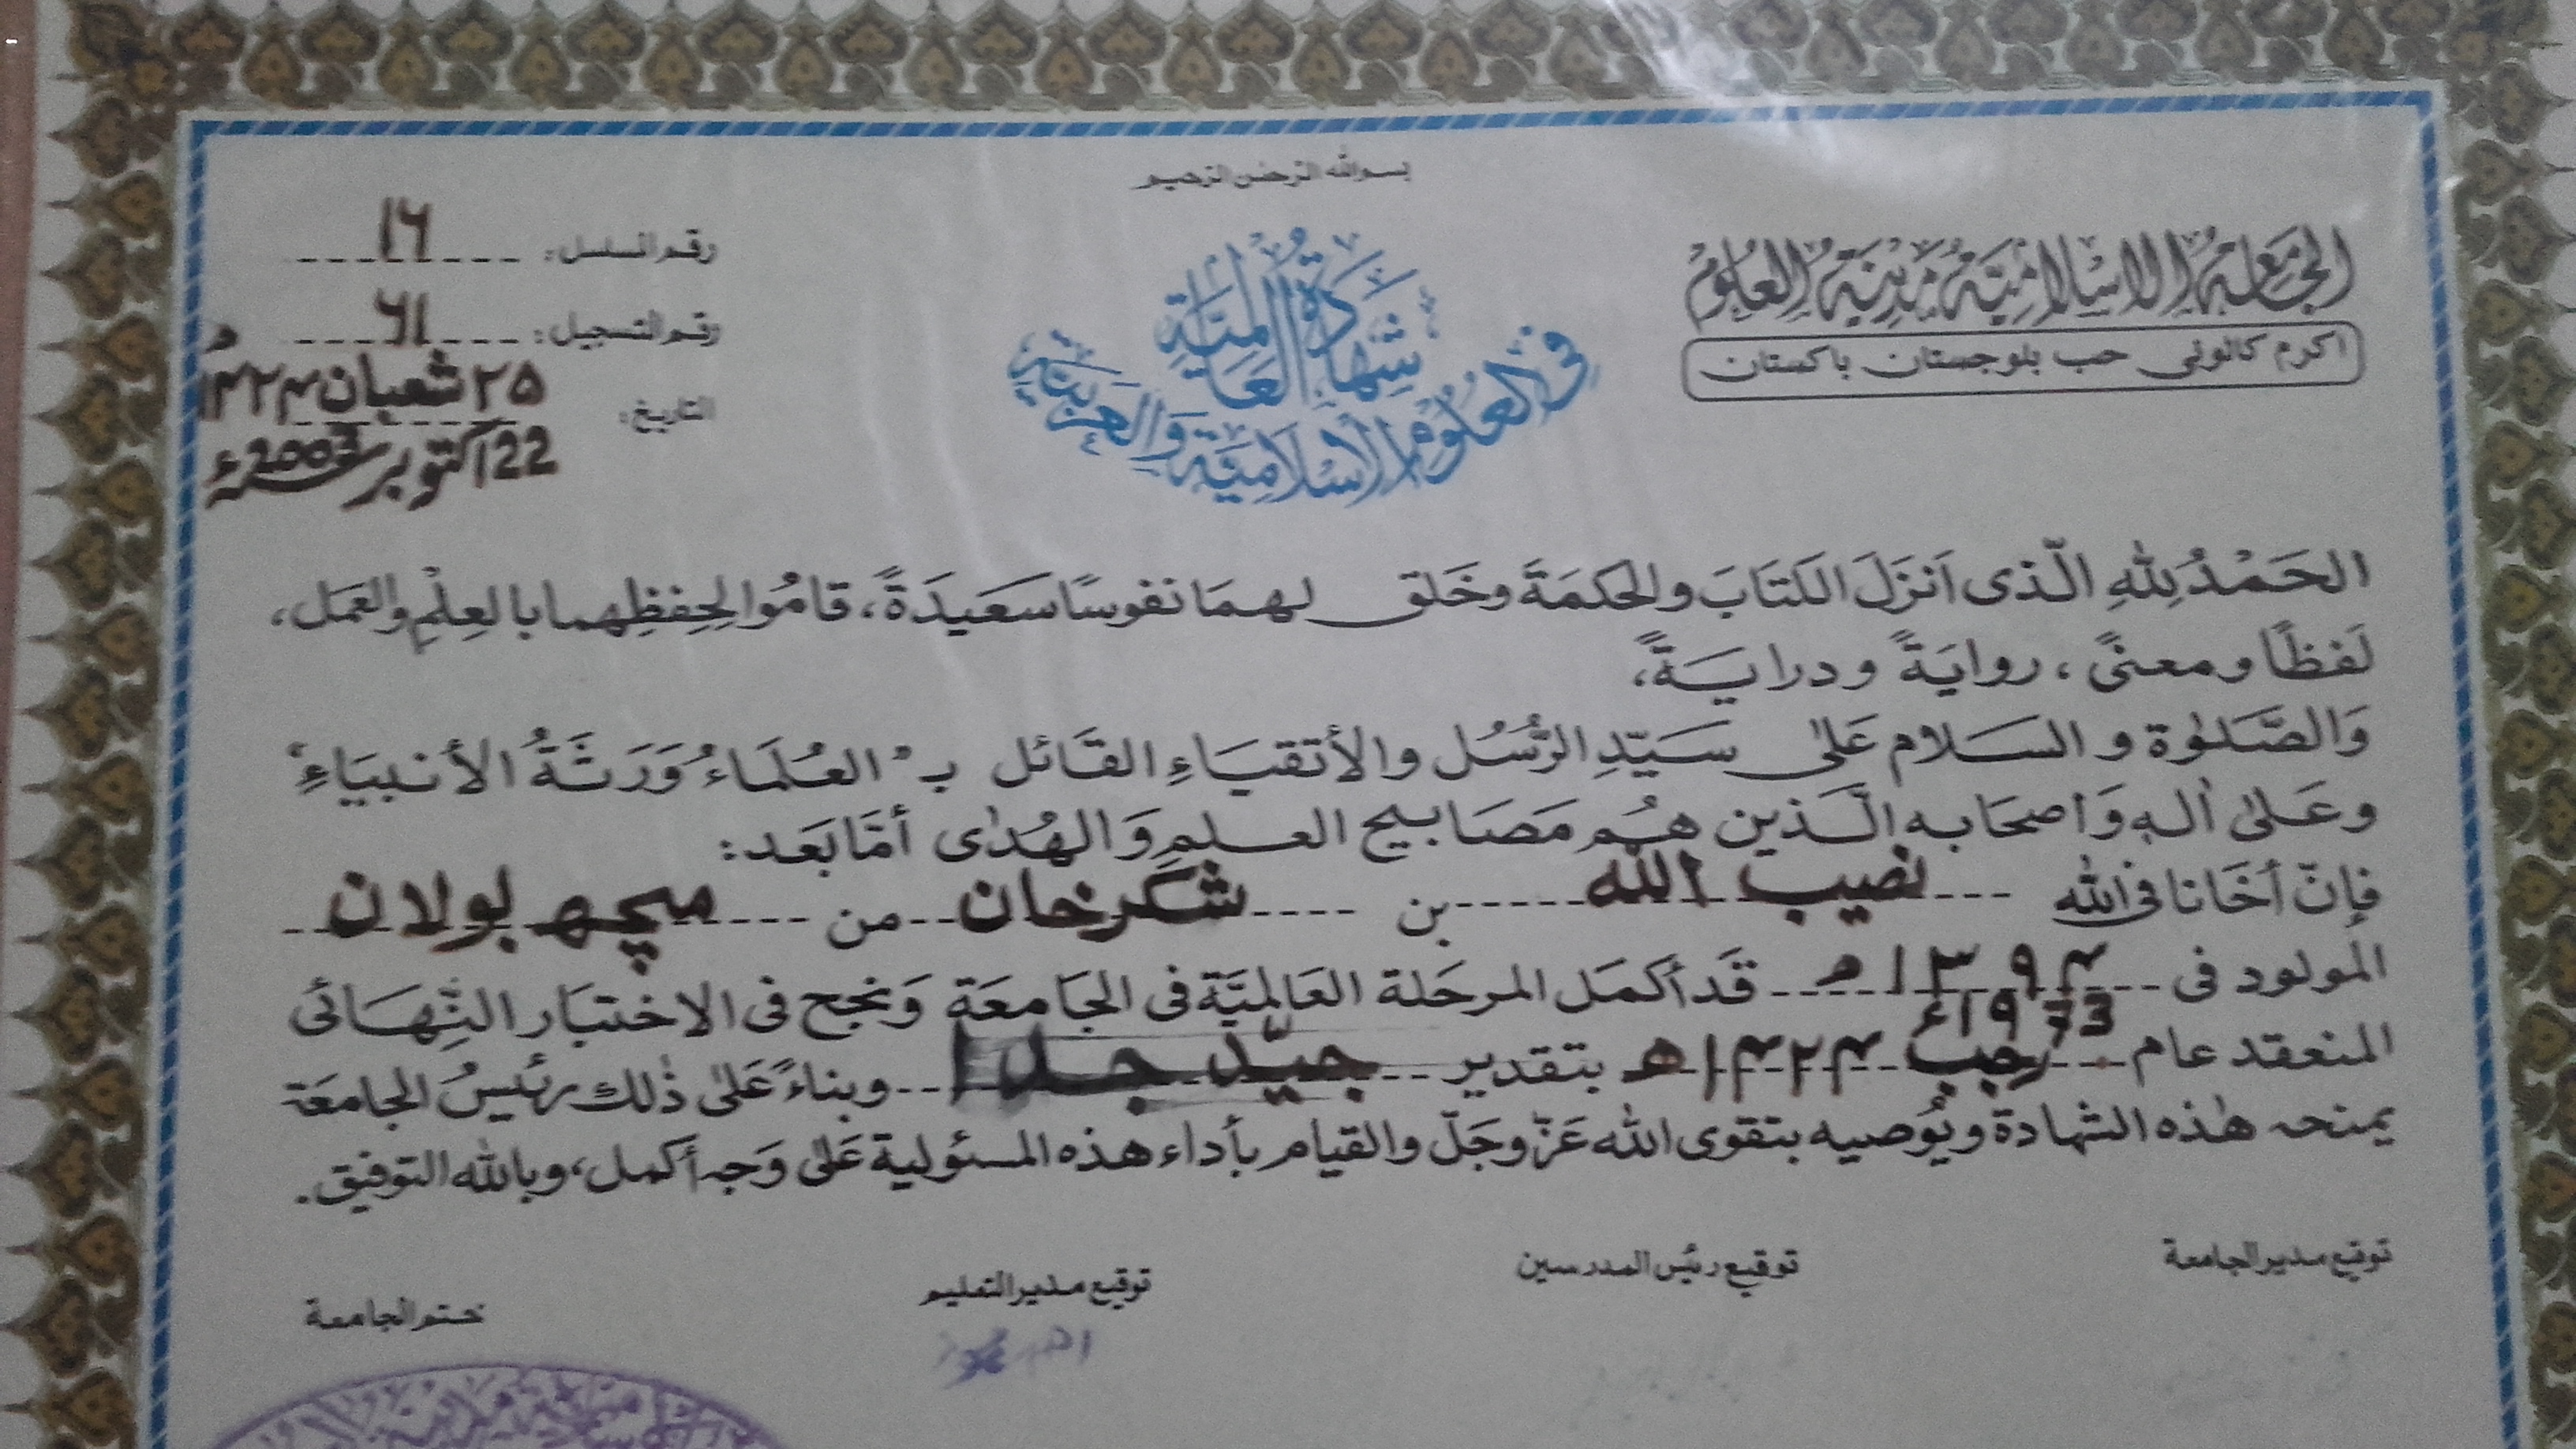 بسم الله الرحمن الرحيم
الجَامعَة الإسْلَاميَّة مَدينَة العُلوم
اكرم كالونى حب بلوجستان باكستان
شهَادة العَالميَّة
فى العلوم الاسلاميَّة والعربيَّة
رقم المسلسل: ١٦
رقم التسجيل: ٦١
التاريخ: ٢٥ شعبان ١٤٢٤ھ
22 اکتوبر 2003ء
الحَمْدُ لِلّٰهِ الّذى اَنزَلَ الكتَابَ والحكمَةَ وخَلق لهمَا نفوسًا سَعيدَةً، قامُوا لحِفظِهما بالعِلْمِ والعَمل،
لَفظًا ومعنىً، روايَةً ودرايَةً،
وَالصَّلوٰة والسَلام عَلىٰ سَيّدِ الرُّسُل والأتقيَاءِ القَائل بـ "العُلَمَاءُ وَرَثَةُ الأنبيَاءِ"
وعَلىٰ اٰلهٖ وَاَصحَابه الَّذين هُم مَصَابيح العلم وَالهُدٰى أمّا بَعَد:
فإنّ أخَانا فى الله نصیب اللہ بن شکر خان من مچھ بولان
المولود فى ١٣٩٣ھ قَد أكمَل المرحَلة العَالميَّة فى الجَامعَة وَنجح فى الاختبَار النِّهَائى
1973ء
المنعقد عام رجب ١٤٢٤ھ بتقدير جیّد جدا وبناءً عَلىٰ ذٰلك رئيسُ الجامعَة
يمنحه هٰذه الشهادة ويُوصيه بتقوى الله عَزّ وجَلّ والقيام بأداء هذه المسئولية عَلىٰ وَجه أكمل، وبالله التوفيق.
توقيع مدير الجامعة
توقيع رئيس المدرسين
توقيع مدير التعليم
ختم الجامعة